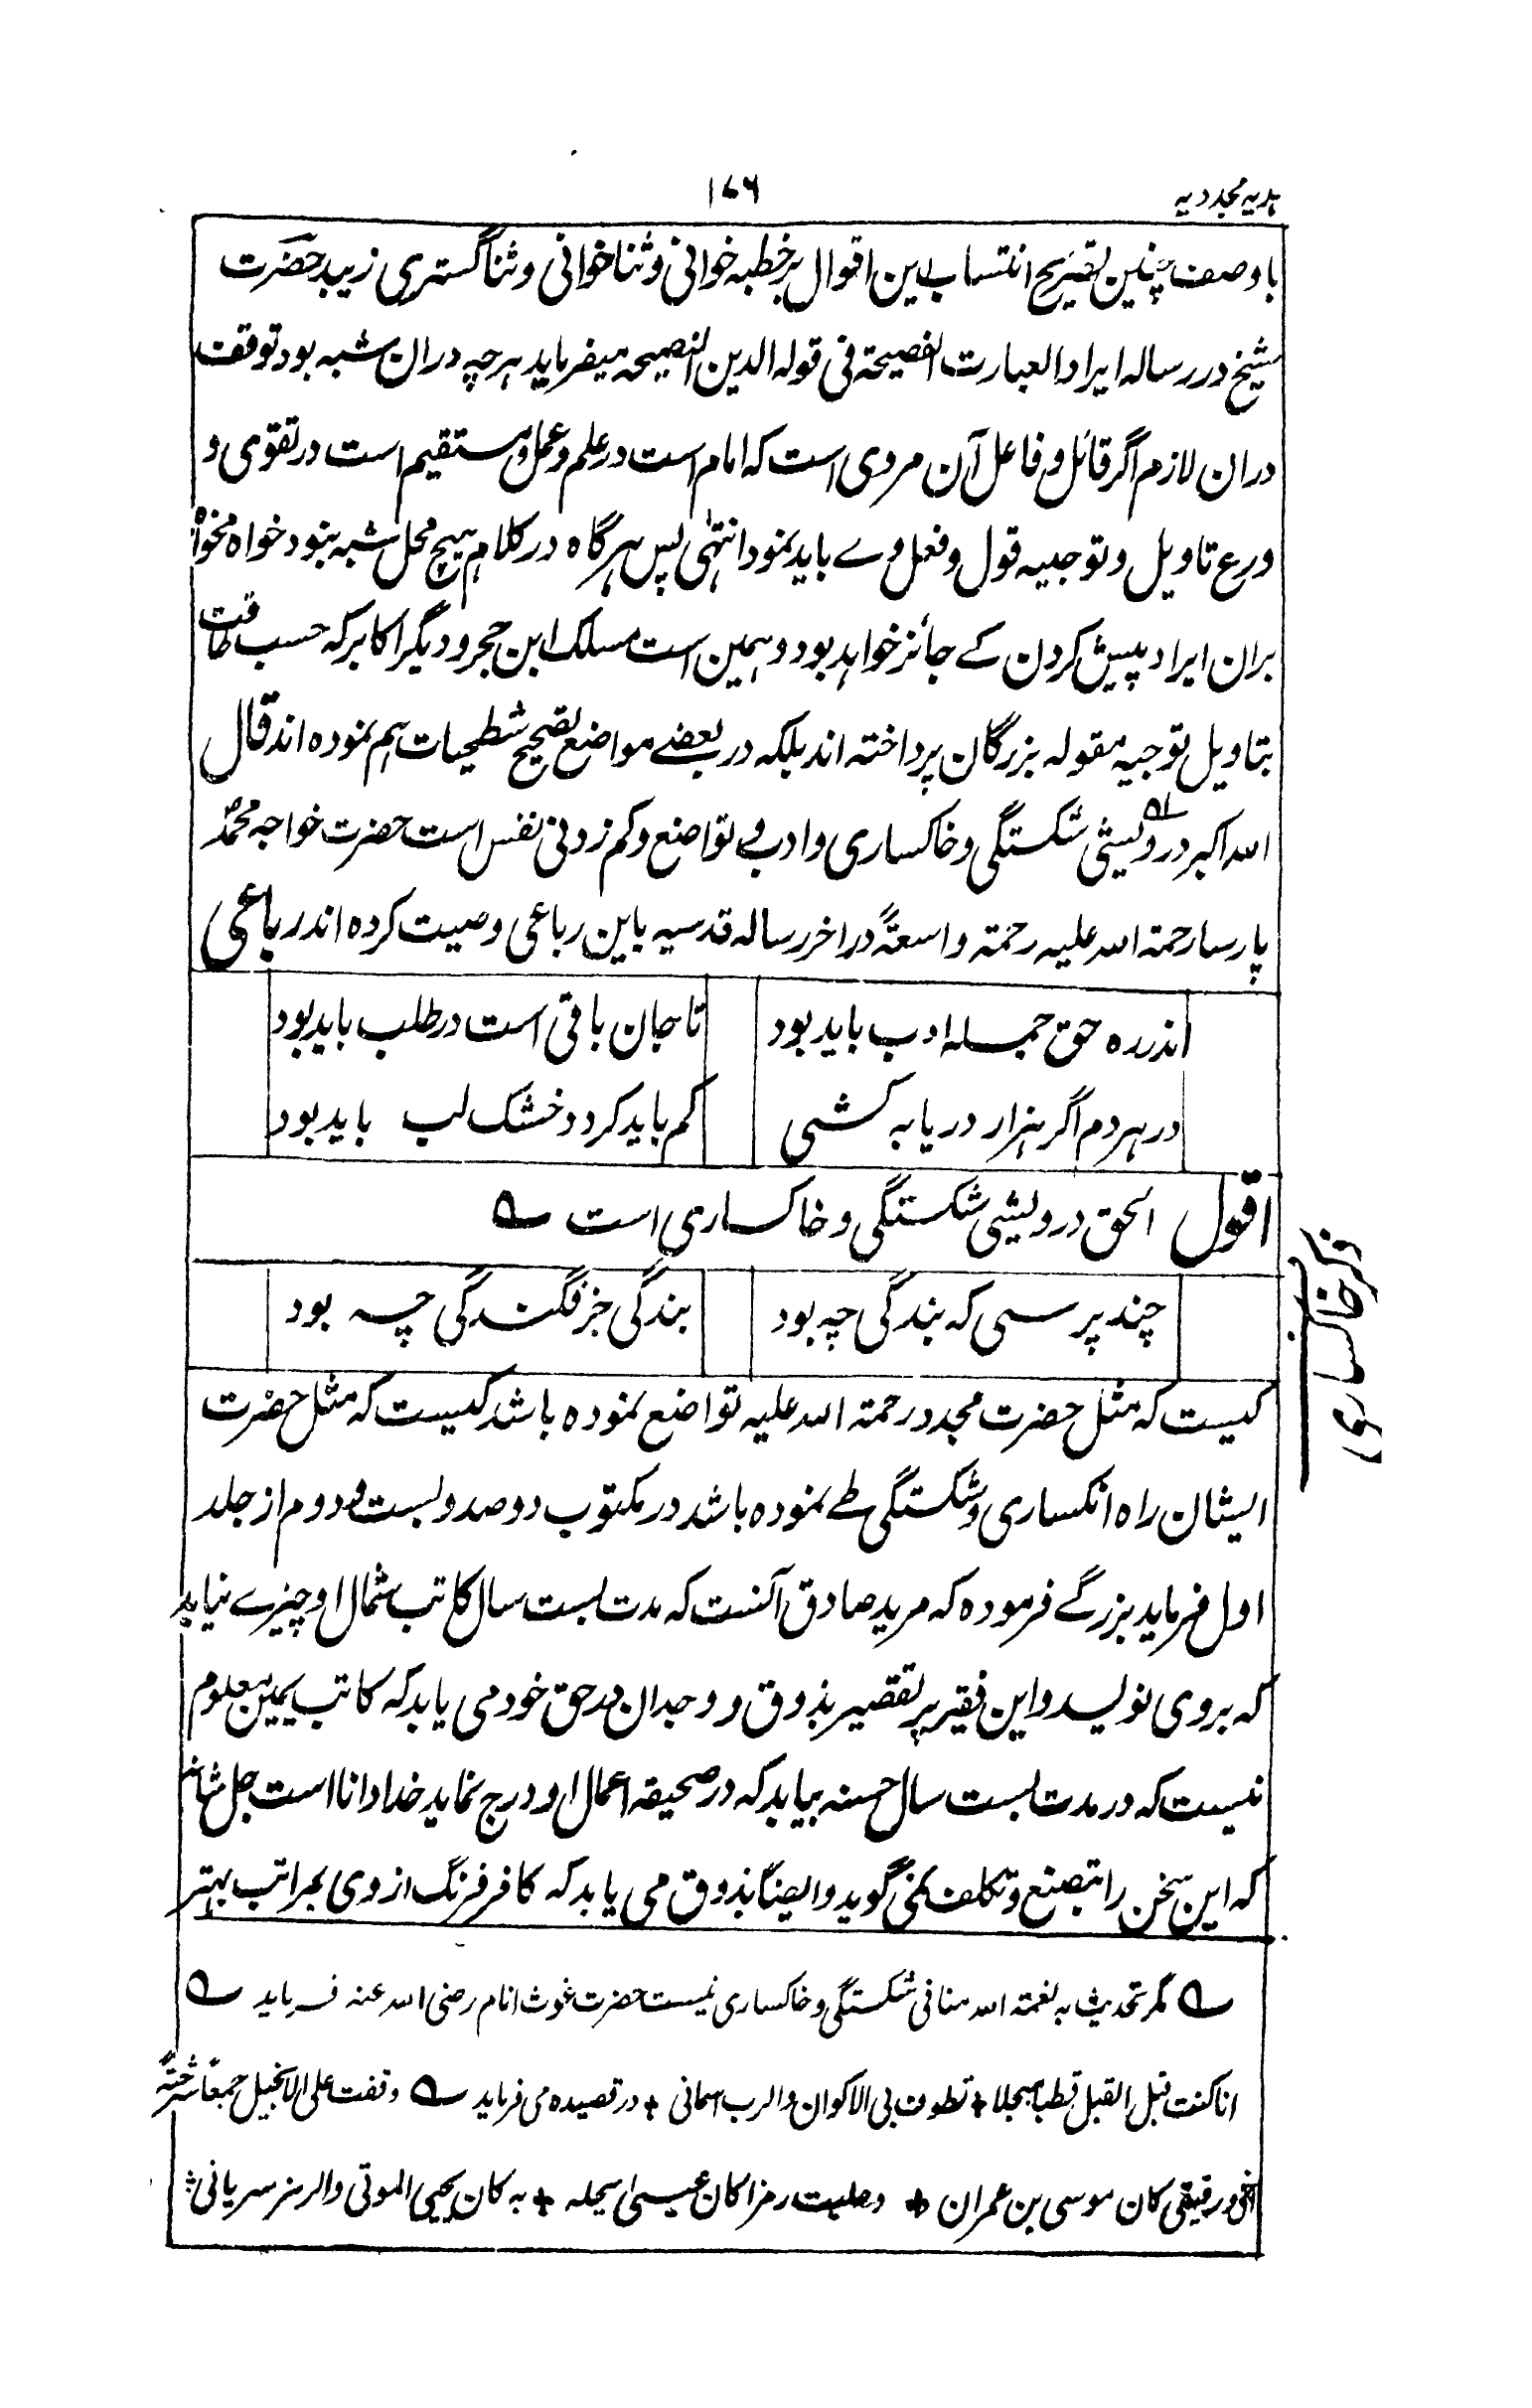 ہدیہ مجددیہ
۱۷۶
باوصف چنین تصریح انتساب این اقوال بر خطبہ خوانی و ثنا خوانی و ثنا گستری زیبد حضرت
شیخ در رسالہ ایراد العبارت الفصیحۃ فی قولہ الدین النصیحہ میفرماید ہرچہ دران شبہ بود توقف
دران لازم اگر قائل و فاعل آن مروی است کہ امام است در علم و عمل و مستقیم است در تقوی و
ورع تاویل و توجیہ قول و فعل وے باید نمود انتہٰی پس ہرگاہ در کلام ہیچ محل شبہ بنود خواہ مخواہ
بران ایراد پیش کردن کے جائز خواہد بود و ہمین است مسلک ابن حجر و دیگر اکابر کہ حسب طاقت
بتاویل توجیہ مقولہ بزرگان پرداختہ اند بلکہ در بعضے مواضع تصحیح شطحیات ہم نمودہ اند قال
اللہ اکبر درویشی شکستگی و خاکساری و ادب و تواضع و کم زدنی نفس است حضرت خواجہ محمدؐ
پارسا رحمۃ اللہ علیہ رحمۃ واسعۃً در اخر رسالہ قدسیہ باین رباعی وصیت کردہ اند رباعی
اندرہ حق جملہ ادب باید بود
تا جان باقی است در طلب باید بود
در ہر دم اگر ہزار دریا بہ کشی
کم باید کرد و خشک لب باید بود
اقول الحق درویشی شکستگی و خاکساری است ؎
چند پرسی کہ بندگی چہ بود
بندگی جز فگندگی چہ بود
ذکر خاکساری
کیست کہ مثل حضرت مجدد رحمۃ اللہ علیہ تواضع نمودہ باشد کیست کہ مثل حضرت
ایشان راہ انکساری و شکستگی طے نمودہ باشد در مکتوب دو صد و بست و دوم از جلد
اول فرماید بزرگے فرمودہ کہ مرید صادق آنست کہ مدت بست سال کاتب شمال او چیزے نیابد
کہ بروی نویسد و این فقیر پر تقصیر بذوق و وجدان در حق خود می یابد کہ کاتب یمین معلوم
نیست کہ در مدت بست سال حسنہ بیابد کہ در صحیفہ اعمال او درج نماید خدا دانا است جل شانہ
کہ این سخن را بتصنع و تکلف نمی گوید و ایضًا بذوق می یابد کہ کافر فرنگ از وی بمراتب بہتر
؎ مگر تحدیث بہ نعمۃ اللہ منافی شکستگی و خاکساری نیست حضرت غوث انام رضی اللہ عنہ فرماید ؎
انا کنت قبل القبل قطبا مبجلا + تطوف بی الاکوان والرب اسمانی + در قصیدہ می فرماید ؎ وقفت علی الانجیل حتی شرحتہ
و رفیقی کان موسی بن عمران + و رمزا کان عیسیٰ یحلہ + بہ کان یحیی الموتی والرمز سریانی